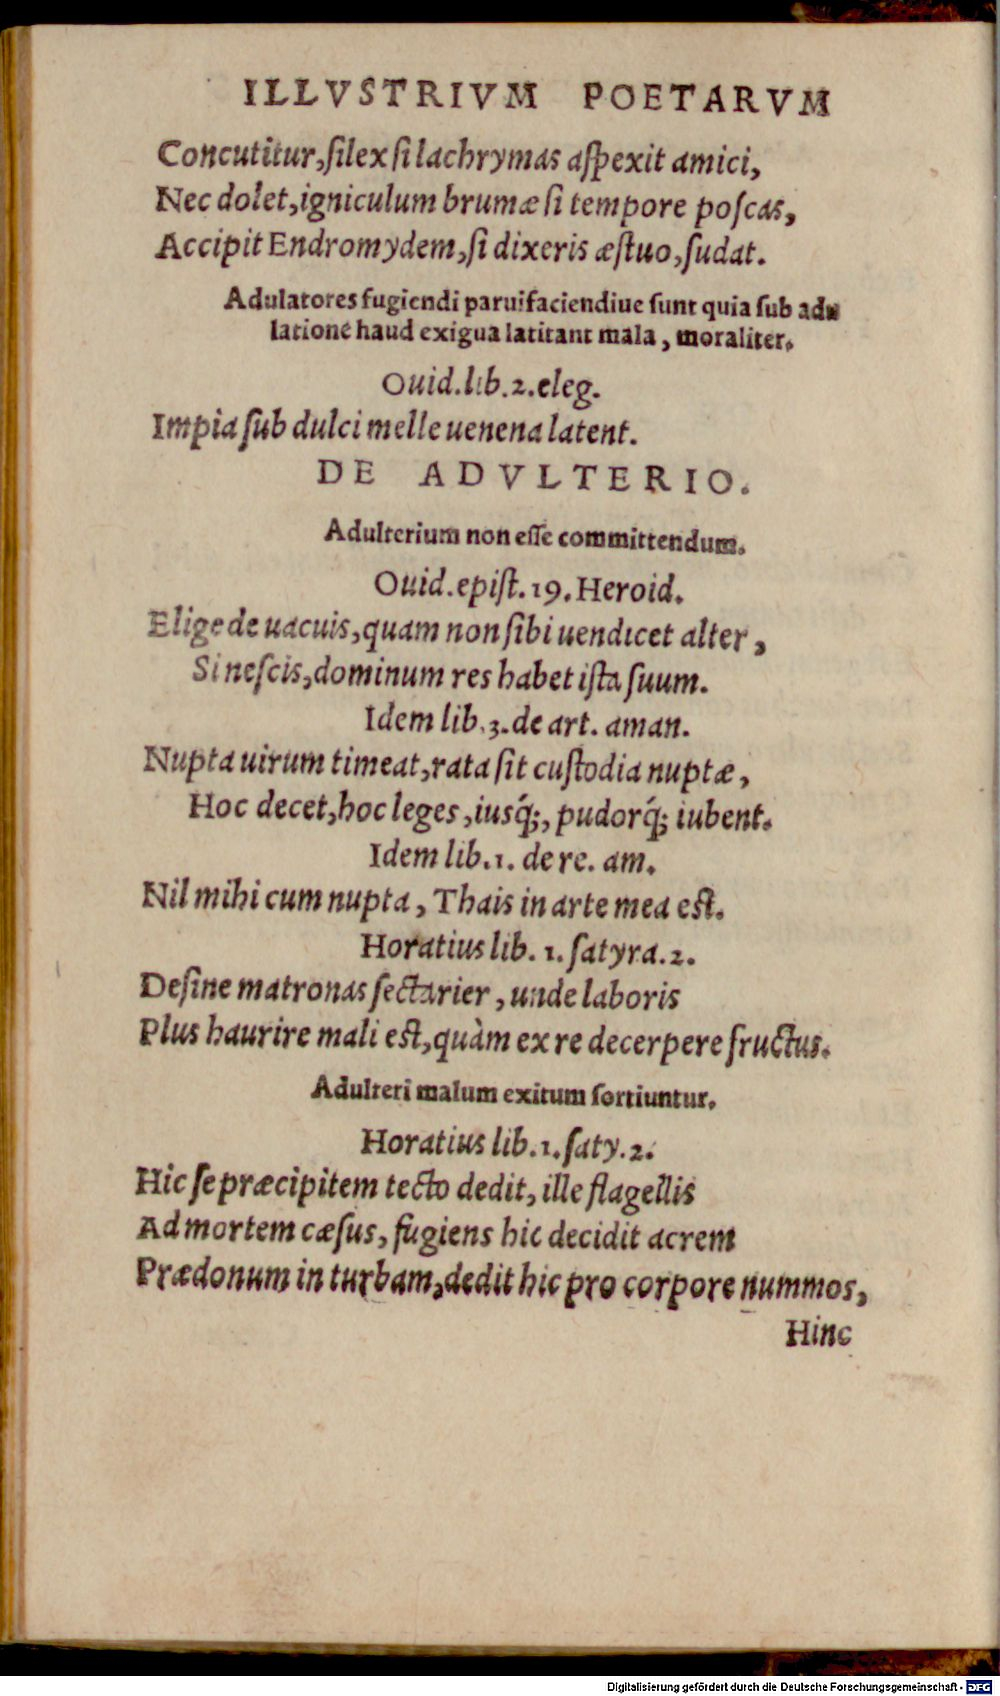 ILLVSTRIVM POETARVM
Concutitur, ſilex ſi lachrymas aſpexit amici,
Nec dolet, igniculum brumæ ſi tempore poſcas,
Accipit Endromydem, ſi dixeris æſtuo, ſudat.
Adulatores fugiendi paruifaciendiue ſunt quia ſub adu
latione haud exigua latitant mala, moraliter.
Ouid. lib. 2. eleg.
Impia ſub dulci melle uenena latent.
DE ADVLTERIO.
Adulterium non eſſe committendum.
Ouid. epiſt. 19. Heroid.
Elige de uacuis, quam non ſibi uendicet alter,
Si neſcis, dominum res habet iſta ſuum.
Idem lib. 3. de art. aman.
Nupta uirum timeat, rata ſit cuſtodia nuptæ,
Hoc decet, hoc leges, iusq́;, pudorq́; iubent.
Idem lib. 1. de re. am.
Nil mihi cum nupta, Thais in arte mea eſt.
Horatius lib. 1. ſatyra. 2.
Deſine matronas ſectarier, unde laboris
Plus haurire mali eſt, quàm ex re decerpere fructus.
Adulteri malum exitum ſortiuntur.
Horatius lib. 1. ſaty. 2.
Hic ſe præcipitem tecto dedit, ille flagellis
Ad mortem cæſus, fugiens hic decidit acrem
Prædonum in turbam, dedit hic pro corpore nummos,
Hinc
Digitalisierung gefördert durch die Deutsche Forschungsgemeinschaft - DFG